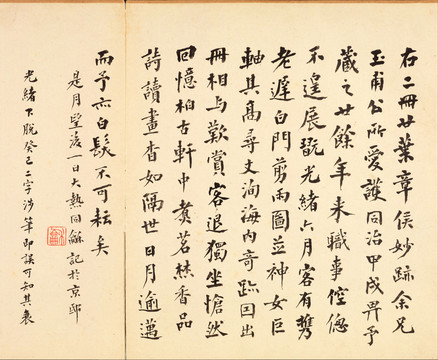 右二冊廿葉章侯妙蹟余兄
玉甫公所愛護同治甲戌畀予
藏之廿餘年来職事倥傯
不遑展翫光緒六月客有攜
老遲白門剪雨圖並神女巨
軸其高尋丈洵海内奇跡因出
冊相与歎賞客退獨坐愴然
回憶柏古軒中煑茗爇香品
詩讀畫杳如隔世日月逾邁
而予亦白髮不可耘矣
是月望後一日大熱同龢記於京邸
光緒下脫癸巳二字涉筆即誤可知其衰